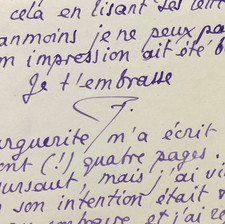 cela en lisant ses lett
anmoins je ne peux pa
m impression ait été b
Je t'embrasse
J.
rguerite m'a écrit
ent (!) quatre pages.
ursaut, mais j'ai vi
son intention était
et j'ai